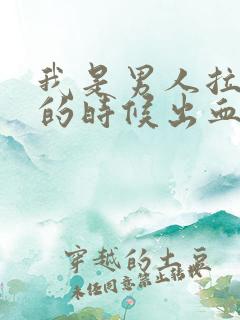 我是男人拉
的时候出血
穿越的土豆
未经同意禁止转载